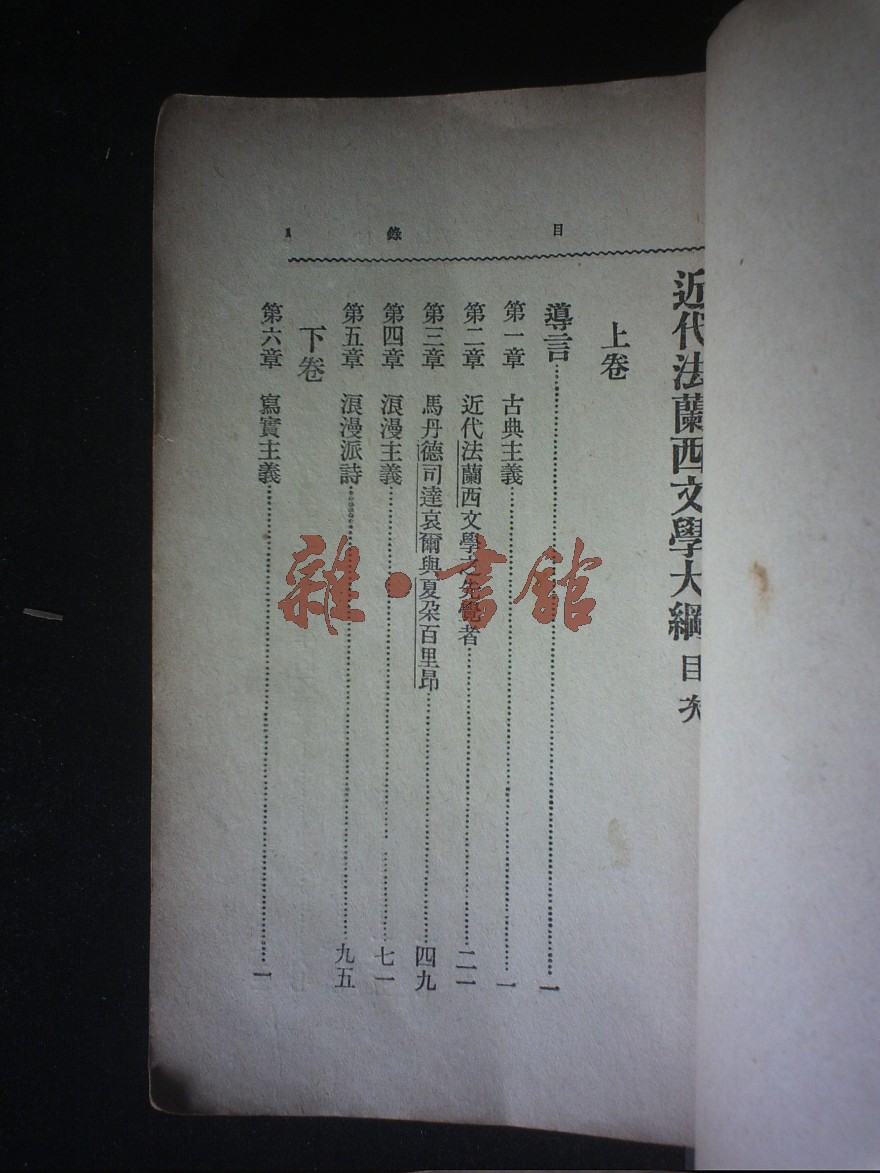 目錄 1
近代法蘭西文學大綱 目次
上卷
導言……一
第一章 古典主義……一
第二章 近代法蘭西文學之先覺者……二一
第三章 馬丹德司達哀爾與夏朶百里昂……四九
第四章 浪漫主義……七一
第五章 浪漫派詩……九五
下卷
第六章 寫實主義……一
雜·書館